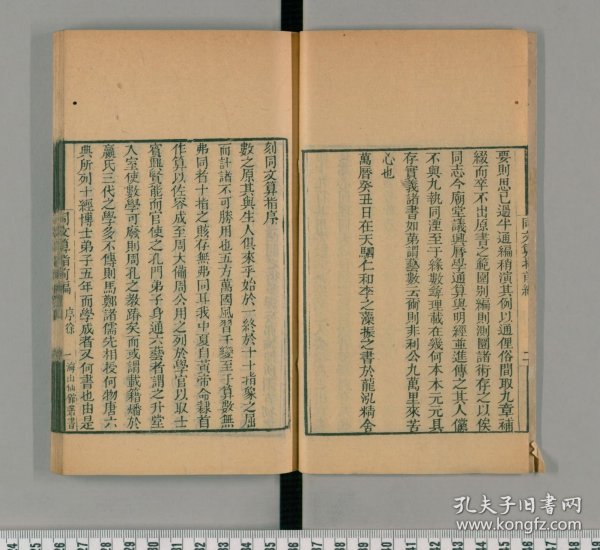 要則思已過半通編稍演其例以通俚俗間取九章補
綴而卒不出原書之範圍別編則測圜諸術存之以俟
同志今廟堂議興曆學通算與明經並進傳之其人儻
不與九執同湮至于緣數尋理載在幾何本本元元具
存實義諸書如第謂藝數云爾則非利公九萬里來苦
心也
萬曆癸丑日在天駟仁和李之藻振之書於龍泓精舍
刻同文算指序
數之原其與生人俱來乎始於一終於十十指象之屈
而計諸不可勝用也五方萬國風習千變至于算數無
弗同者十指之賅存無弗同耳我中夏自黃帝命隸首
作算以佐容成至周大備周公用之列於學官以取士
賓興賢能而官使之孔門弟子身通六藝者謂之升堂
入室使數學可廢則周孔之教踳矣而或謂載籍燔於
嬴氏三代之學多不傳則馬鄭諸儒先相授何物唐六
典所列十經博士弟子五年而學成者又何書也由是
同文算指前編
序徐
一
海山仙館叢書
孔夫子旧书网
www.kongfz.com
24 25 26 27 28 29 30 31 32 33 34 35 36 37 38 39